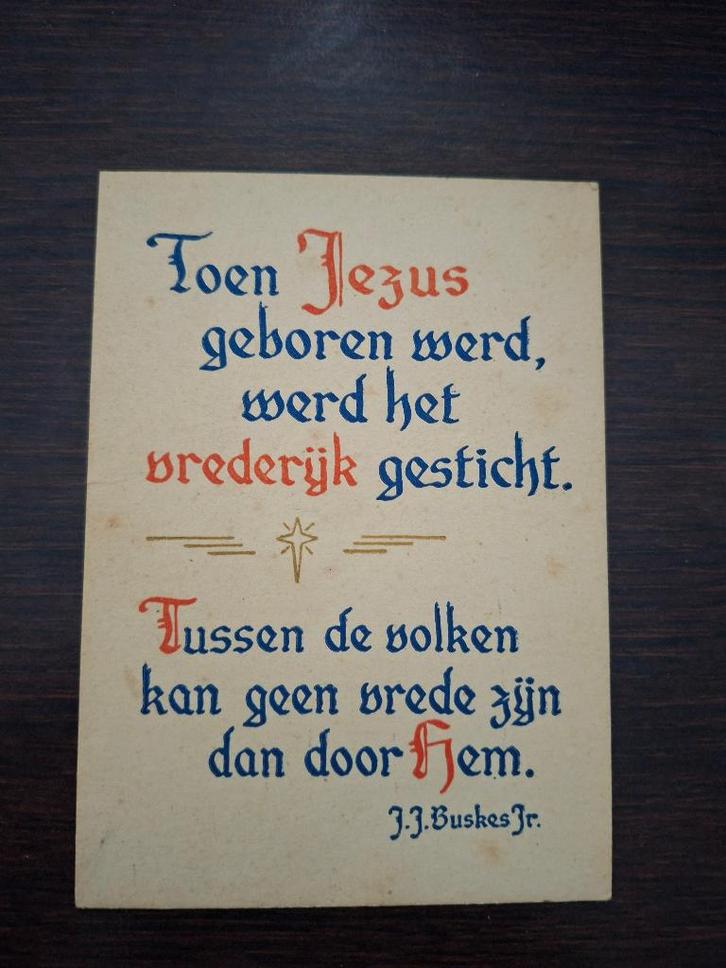 Toen Jezus
geboren werd,
werd het
vrederijk gesticht.
Tussen de volken
kan geen vrede zijn
dan door Hem.
J.J. Buskes Jr.